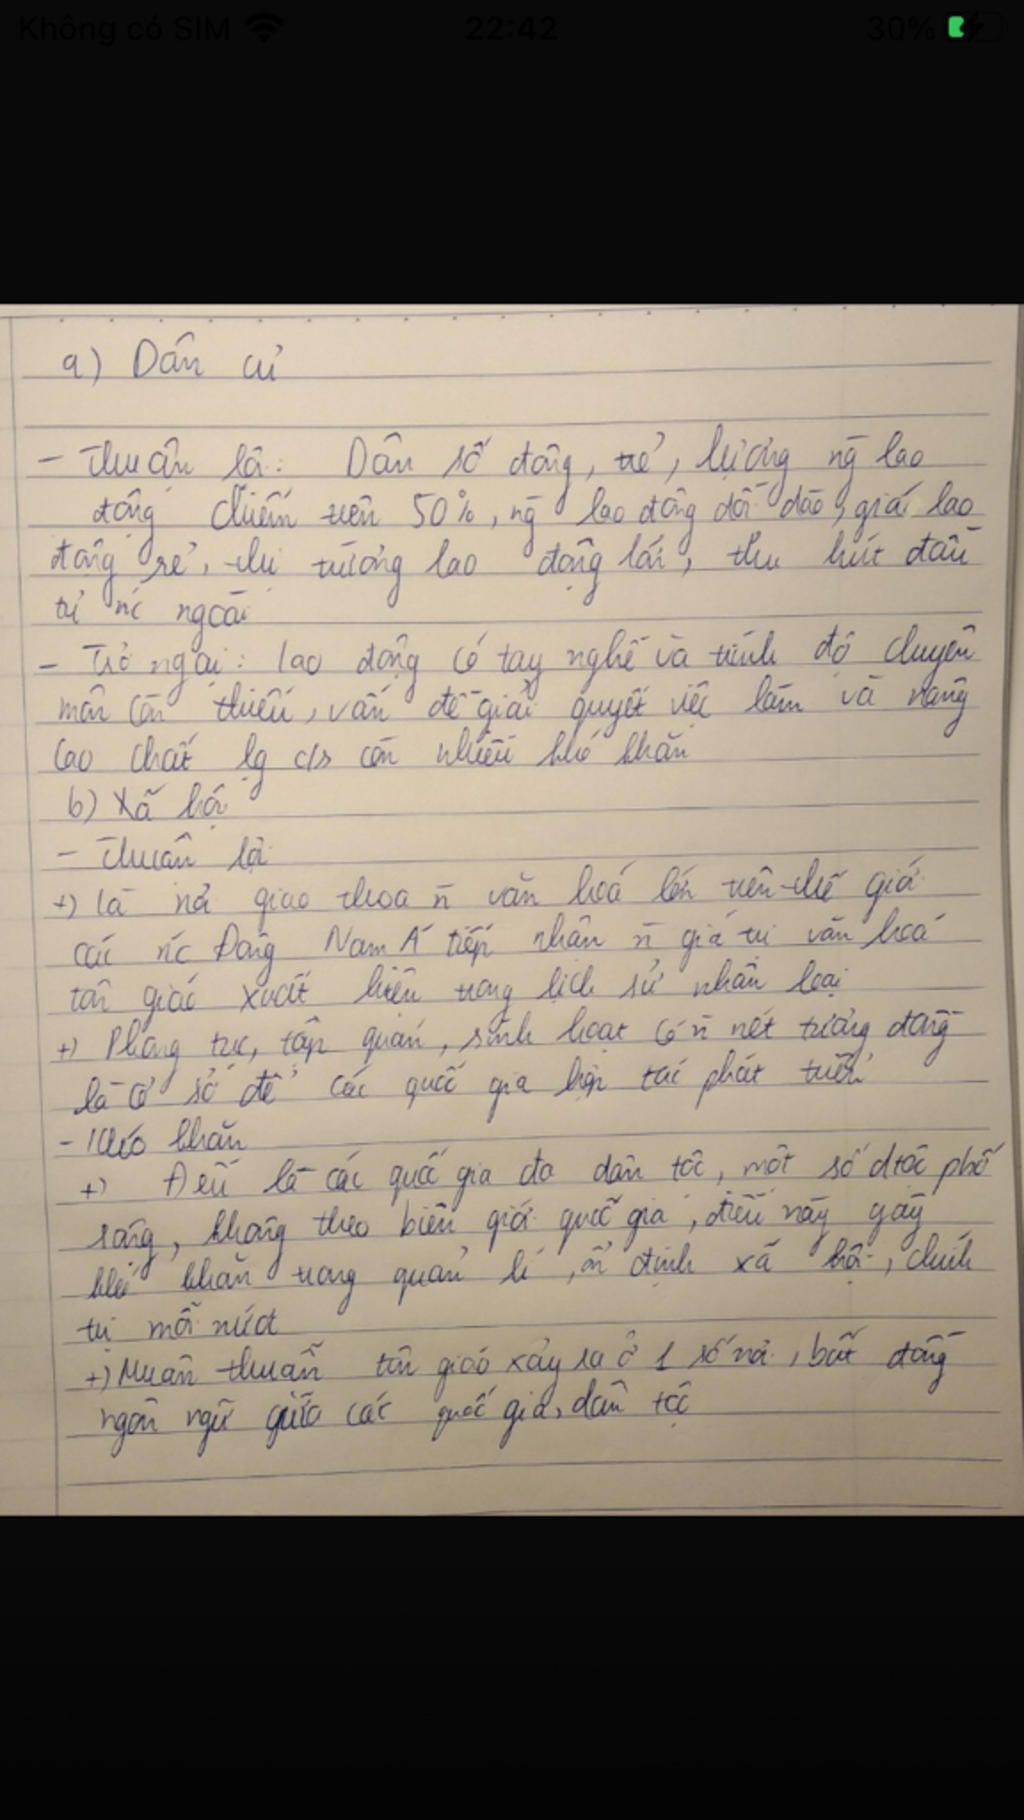 Không có SIM 22:42 30%
a) Dân cư
- Thuận lợi: Dân số đông, trẻ, lượng ng lao
động chiếm trên 50%, ng lao động dồi dào, giá lao
động rẻ, thị trường lao động lớn, thu hút đầu
tư nc ngoài
- Trở ngại: lao động có tay nghề và trình độ chuyên
môn còn thiếu, vấn đề giải quyết việc làm và nâng
cao chất lg c/s còn nhiều khó khăn
b) Xã hội
- Thuận lợi
+) là nơi giao thoa n̄ văn hoá lớn trên thế giới
các nc Đông Nam Á tiếp nhận n̄ giá trị văn hoá
tôn giáo xuất hiện trong lịch sử nhân loại
+) Phong tục, tập quán, sinh hoạt có n̄ nét tương đồng
là cơ sở để các quốc gia hợp tác phát triển
- Khó khăn
+) Đều là các quốc gia đa dân tộc, một số dtộc phố
rộng, không theo biên giới quốc gia, điều này gây
khó khăn trong quản lí, ổn định xã hội, chính
trị mỗi nước
+) Muân thuẫn tôn giáo xảy ra ở 1 số nơi, bất đồng
ngôn ngữ giữa các quốc gia, dân tộc